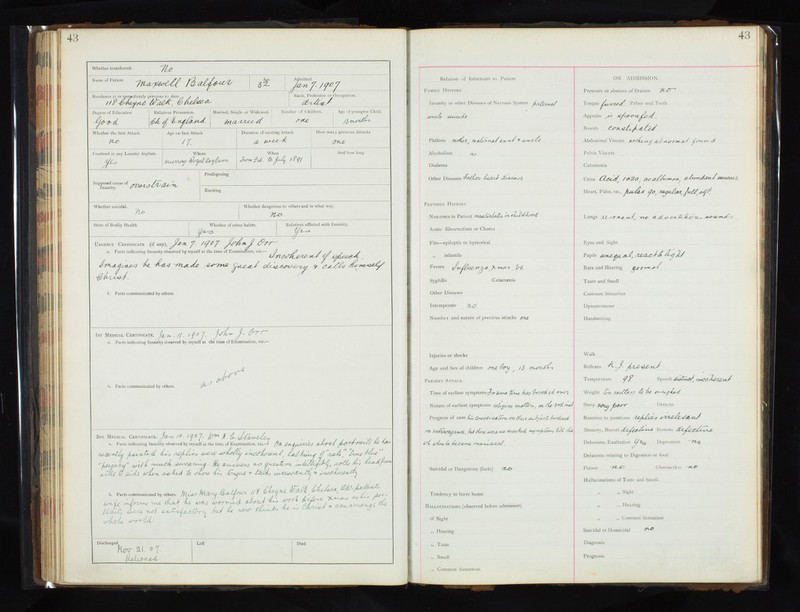 43
Whether transferred. No
Name of Patient. Maxwell Balfour
Admitted Jan 7. 1907
Residence at or immediately previous to date.
118 Cheyne Walk, Chelsea
Rank, Profession or Occupation.
artist
Degree of Education. Religious Persuasion. Married, Single or Widowed. Number of Children. Age of youngest Child.
Good Ch of England married one 13 months
Whether the first Attack. Age on first Attack Duration of existing Attack How many previous Attacks
no 17. a week one
Confined in any Lunatic Asylum. Where When And how long
Yes Murray Royal Asylum
Supposed cause of Insanity. overstrain
Predisposing
Exciting
Whether suicidal. Whether dangerous to others and in what way.
no no
State of Bodily Health Whether of sober habits Relations afflicted with Insanity.
Yes Yes
Urgency Certificate (if any), Jan 7. 1907 John J. Orr
a. Facts indicating Insanity observed by myself at the time of Examination, viz:— Incoherent of speech
Imagines he has made some great discovery & calls himself
Christ.
b. Facts communicated by others.
1st Medical Certificate. Jan. 11. 1907. John J. Orr
a. Facts indicating Insanity observed by myself at the time of Examination, viz:—
as above
b. Facts communicated by others.
2nd Medical Certificate. Jan 10. 1907.
a. Facts indicating Insanity observed by myself at the time of Examination, viz:— On enquiries about portraits he has
recently painted his replies were wholly incoherent, talking of "rats" "true blue"
with much swearing. He answers no question intelligibly, rolls his head from
side to side when asked to show his tongue & talks incessantly & incoherently
b. Facts communicated by others. Mary Balfour 118 Cheyne Walk Chelsea, SW. patients
wife informs me that he was worried about his work before Xmas
were not satisfactory but he now thinks he is Christ & can arrange the
whole world.
Discharged Left Died
Nov 21 07
Relieved
43
Relation of Informant to Patient
Family History
Insanity or other Diseases of Nervous System paternal
uncle suicide
Phthisis mother, maternal aunt & uncle
Alcoholism no
Diabetes
Other Diseases father heart disease
Personal History
Neuroses in Patient masturbation in childhood
Acute Rheumatism or Chorea
Fits—epileptic or hysterical
„ infantile
Fevers Influenza, Xmas
Syphilis Gonorrhœa
Other Diseases
Intemperate no
Number and nature of previous attacks one
Injuries or shocks
Age and Sex of children one boy, 13 months
Present Attack.
Time of earliest symptoms
Nature of earliest symptoms religious matters,
Progress of case
Suicidal or Dangerous (facts) no
Tendency to leave home
Hallucinations (observed before admission)
of Sight
„ Hearing
„ Taste
„ Smell
„ Common Sensation
ON ADMISSION.
Presence or absence of Eczema no
Tongue furred Palate and Teeth
Appetite is
Bowels constipated
Abdominal Viscera nothing abnormal found
Pelvic Viscera
Catamenia
Urine Acid, 1020, no albumen, abundant mucus
Heart, Pulse, etc., pulse 90, regular, full, soft
Lungs resonant, no adventitious sounds
Eyes and Sight
Pupils unequal, react to light
Ears and Hearing normal
Taste and Smell
Common Sensation
Dynamometer
Handwriting
Walk
Reflexes K.J present
Temperature 98 Speech distinct, incoherent
Weight too restless to be weighed
Sleep very poor Delusions
Reaction to questions replies irrelevant
Memory, Recent defective Remote defective
Delusions, Exaltation Yes Depression no
Delusions relating to Digestion or food.
Poison no Obstruction no
Hallucinations of Taste and Smell.
„ „ Sight
„ „ Hearing
„ „ Common Sensation
Suicidal or Homicidal no
Diagnosis
Prognosis